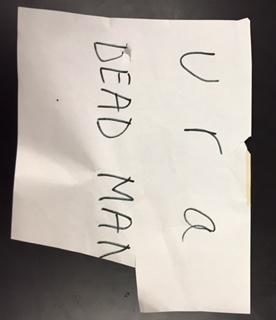 U r a
DEAD MAN